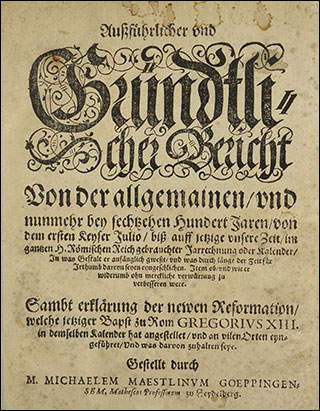 Außführlicher vnd
Gründtli-
cher Bericht
Von der allgemainen/ vnd
nunmehr bey sechtzehen Hundert Jaren/ von
dem ersten Keyser Julio/ biß auff jetzige vnsere Zeit/ im
gantzen H. Römischen Reich gebrauchter Jarrechnung oder Kalender/
In was Gestalt er anfänglich gweßt/ vnd was durch länge der Zeit für
Irrthumb darein seyen eingeschlichen. Item ob/ vnd wie er
widerumb ohn merckliche verwürrung zu
verbessern were.
Sambt erklärung der newen Reformation/
welche jetziger Bapst zu Rom GREGORIVS XIII.
in demselben Kalender hat angestellet/ vnd an vilen Orten eyn-
geführet/ Vnd was darvon zuhalten seye.
Gestellt durch
M. MICHAELEM MAESTLINVM GOEPPINGEN-
SEM, Matheseos Professorem zu Heydelberg.